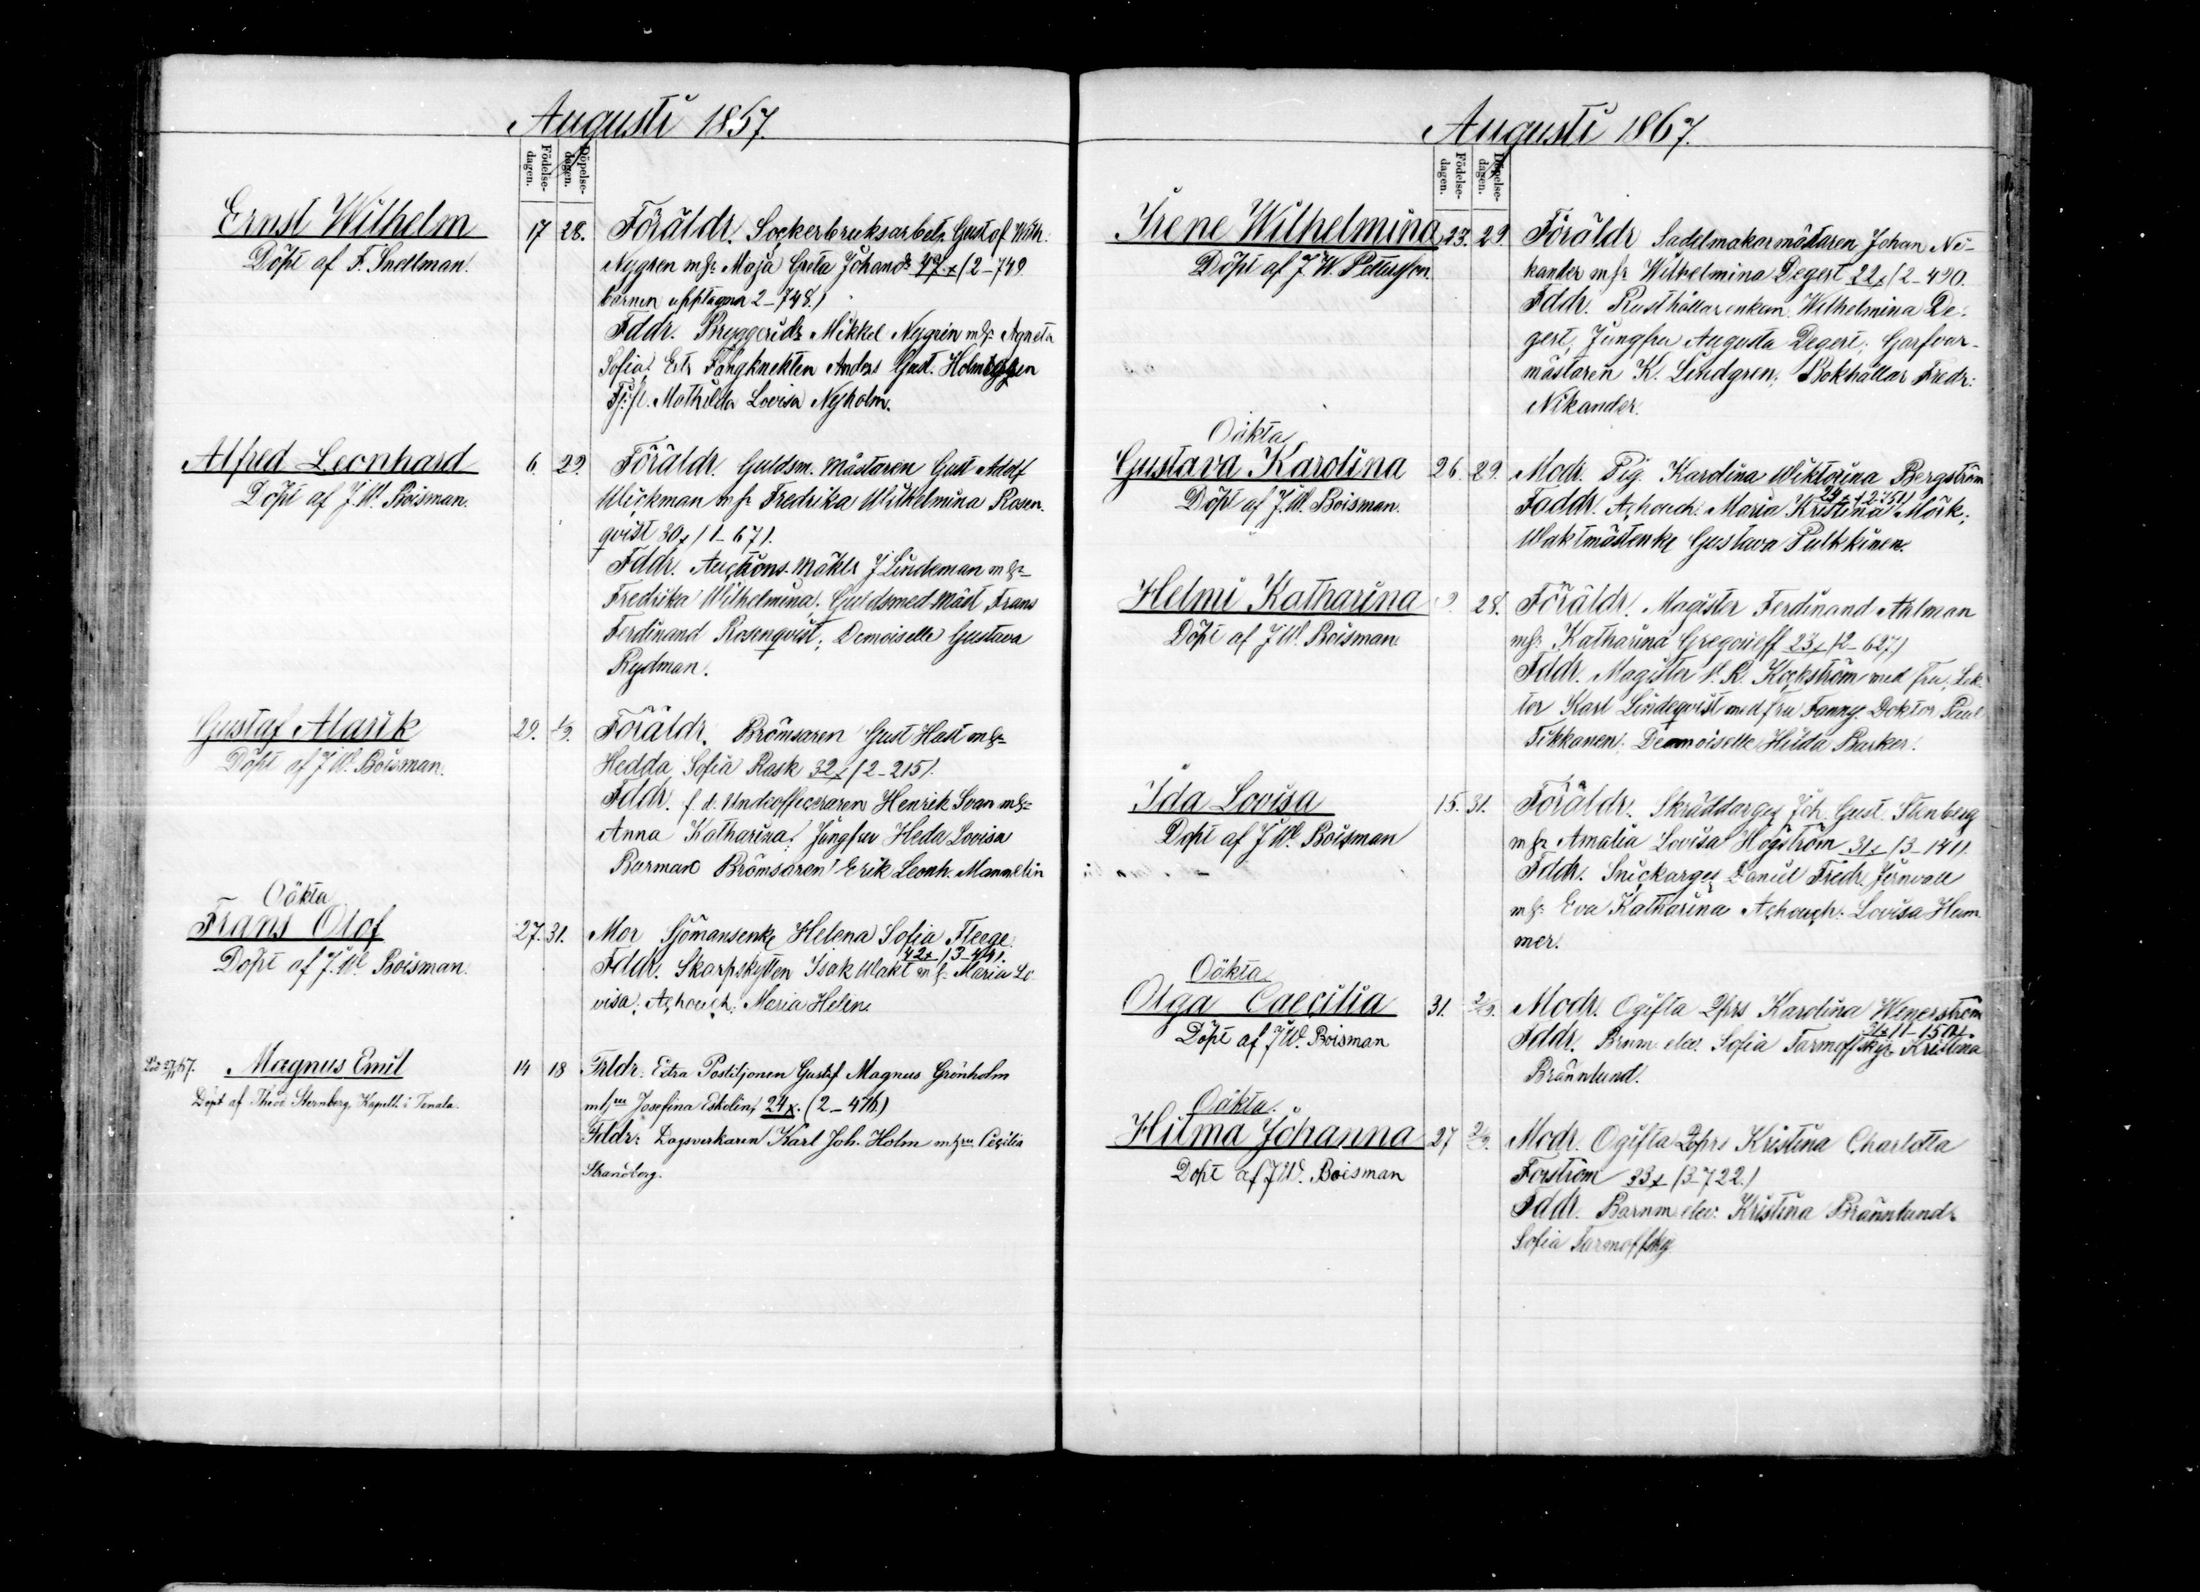 Augusti 1867
Födelse-
dagen.
Döpelse-
dagen.
Ernst Wilhelm
Döpt af F. Snellman.
17 28. Föräldr. Sockerbruksarbet. Gustof Wilh.
Nygren m. h. Maja Greta Johansdr 47 x (2-749
barnen upptagna 2-748.)
Fddr. Mikkel Nygrén m. h. Agneta
Sofia; Fångknekten Anders Gust. Holm
Mathilda Lovisa Nyholm.
Alfred Leonhard
Döpt af J. W. Boisman.
6. 29. Föräldr. Guldsm. Mästaren Gust Adolf
Wickman m h. Fredrika Wilhelmina Rosen-
qvist 30 x (1-67).
Fddr. Auctions-Mäkl. J Lindeman m h.
Fredrika Wilhelmina. Guldsmed Mäst Frans
Ferdinand Rosenqvist; Demoiselle Gustava
Rydman.
Gustaf Alarik
Döpt af J. W. Boisman.
29. 1/9. Föräldr. Brömsaren Gust Hast m h.
Hedda Sofia Rask 32 x (2-215).
Fddr. f. d. Underofficeraren Henrik Svan m h.
Anna Katharina; Jungfru Heda Lovisa
Burman Brömsaren Erik Leonh. Mannelin
Oäkta
Frans Olof
Döpt af J. W. Boisman.
27. 31. Mor Sjömansenk. Helena Sofia Fleege.
42 x (3-441).
Fddr. Skarpskytten Isak Wakt m h. Maria Lo
visa; Maria Helen.
Magnus Emil
Döpt af Theod Sternberg, Kapell. i Tenala.
14 18 Frldr. Extra Postiljonen Gustaf Magnus Grönholm
m h Josefina Eskolin, 24 x. (2-476.)
Fddr: Dagsverkaren Karl Joh. Holm m h Cecilia
Strandberg.
Augusti 1867.
Födelse-
dagen.
Döpelse-
dagen.
Irene Wilhelmina
Döpt af J. W. Petterson.
23. 29 Föräldr Sadelmakarmästaren Johan Ni-
kander m h Wilhelmina Degert 22 x (2-490.
Fddr. Rusthållarenkan Wilhelmina De-
gert, Jungfru Augusta Degert; Garfvar-
mästaren K. Lindgren; Bokhållar Fredr:
Nikander.
Oäkta
Gustava Karolina
Döpt af J. W. Boisman.
26. 29. Modr. Pig. Karolina Wiktorina Bergström
Faddr. Maria Kristina Mörk;
Waktmästenk. Gustava Pulkkinen.
Helmi Katharina
Döpt af J W. Boisman.
28. Föräldr. Magister Ferdinand Ahlman
m h. Katharina Gregorieff 23 x (2-627)
Fddr. Magister V. R. Kockström med fru, Lek-
tor Karl Lindeqvist med fru Fanny. Doktor Paul
Tikkanen; Demoiselle Hilda Barker.
Ida Lovisa
Döpt af J W. Boisman
15. 31. Föräldr. Skräddarges. Joh. Gust. Stenberg
m h. Amalia Lovisa Högström 31 x (3-141).
Fddr. Snickarges. Daniel Fredr. Jernvall
m h. Eva Katharina Lovisa Ham-
mer.
Oäkta
Olga Caecilia
Döpt af J W. Boisman
31. 2/9. Modr. Ogifta Karolina Wenerström
31 x (1-150).
Fddr. Sofia Tarmoffsky Kristina
Brännlund.
Oäkta.
Hilma Johanna
Döpt af J W. Boisman
27 2/9. Modr. Ogifta Kristina Charlotta
Forström 33 x (3-722.)
Fddr. Barnm. elev. Kristina Brännlund
Sofia Tarmoffsky